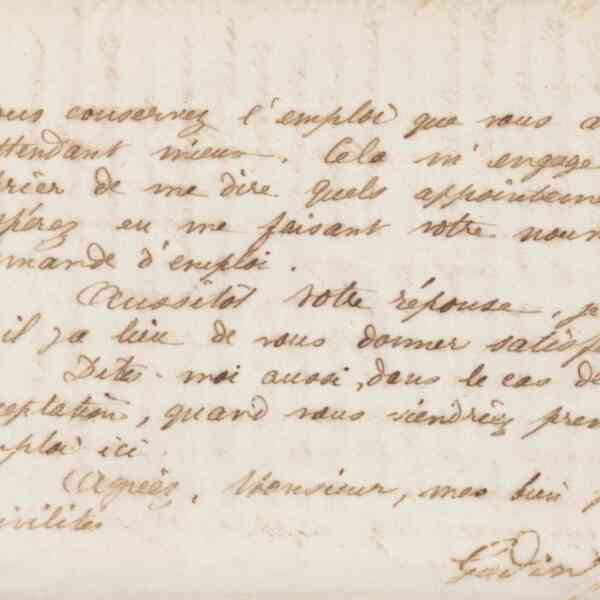 ous conservez l'emploi que vous a
ttendant mieux. Cela m'engage
rier de me dire quels appointeme
pérez en me faisant votre nouv
mande d'emploi.
Aussitôt votre réponse, je
il y a lieu de vous donner satisf
Dites-moi aussi, dans le cas d
ceptation, quand vous viendriez pren
mploi ici.
Agréez, Monsieur, mes bien
ivilités
Godin